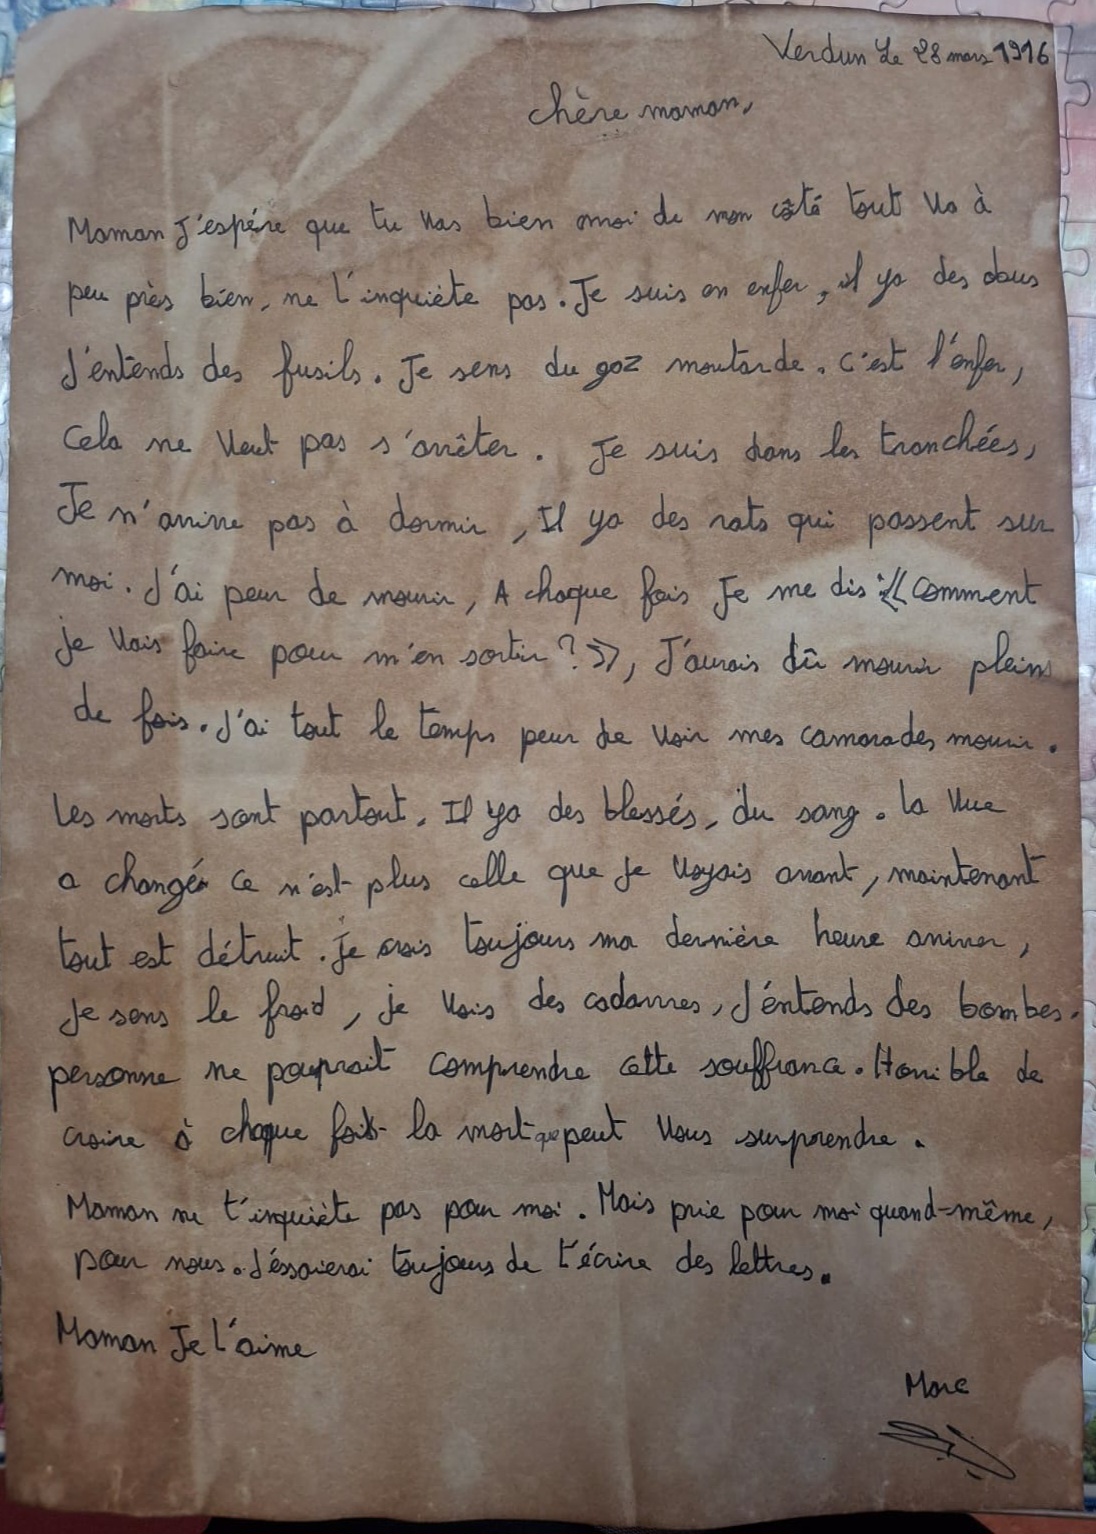 Verdun Le 28 mars 1916
chère maman,
Maman J'espére que tu vas bien moi de mon côté tout va à
peu près bien, ne t'inquiète pas. Je suis en enfer, il ya des obus
J'entends des fusils. Je sens du gaz moutarde. C'est l'enfer,
Cela ne veut pas s'arrêter. Je suis dans les tranchées,
Je n'arrive pas à dormir, Il ya des rats qui passent sur
moi. J'ai peur de mourir, A chaque fois Je me dis : << Comment
je vais faire pour m'en sortir ? >>, J'aurais dû mourir pleins
de fois. J'ai tout le temps peur de voir mes camarades mourir.
Les morts sont partout. Il ya des blessés, du sang. la vue
a changé ce n'est plus celle que je voyais avant, maintenant
tout est détruit. Je crois toujours ma dernière heure arriver,
Je sens le froid, je vois des cadavres, J'éntends des bombes.
personne ne pourrait comprendre cette souffrance. Horrible de
croire à chaque fois la mort que peut vous surprendre.
Maman ne t'inquiète pas pour moi. Mais prie pour moi quand-même,
pour nous. J'éssaierai toujours de t'écrire des lettres.
Maman Je t'aime
Marc